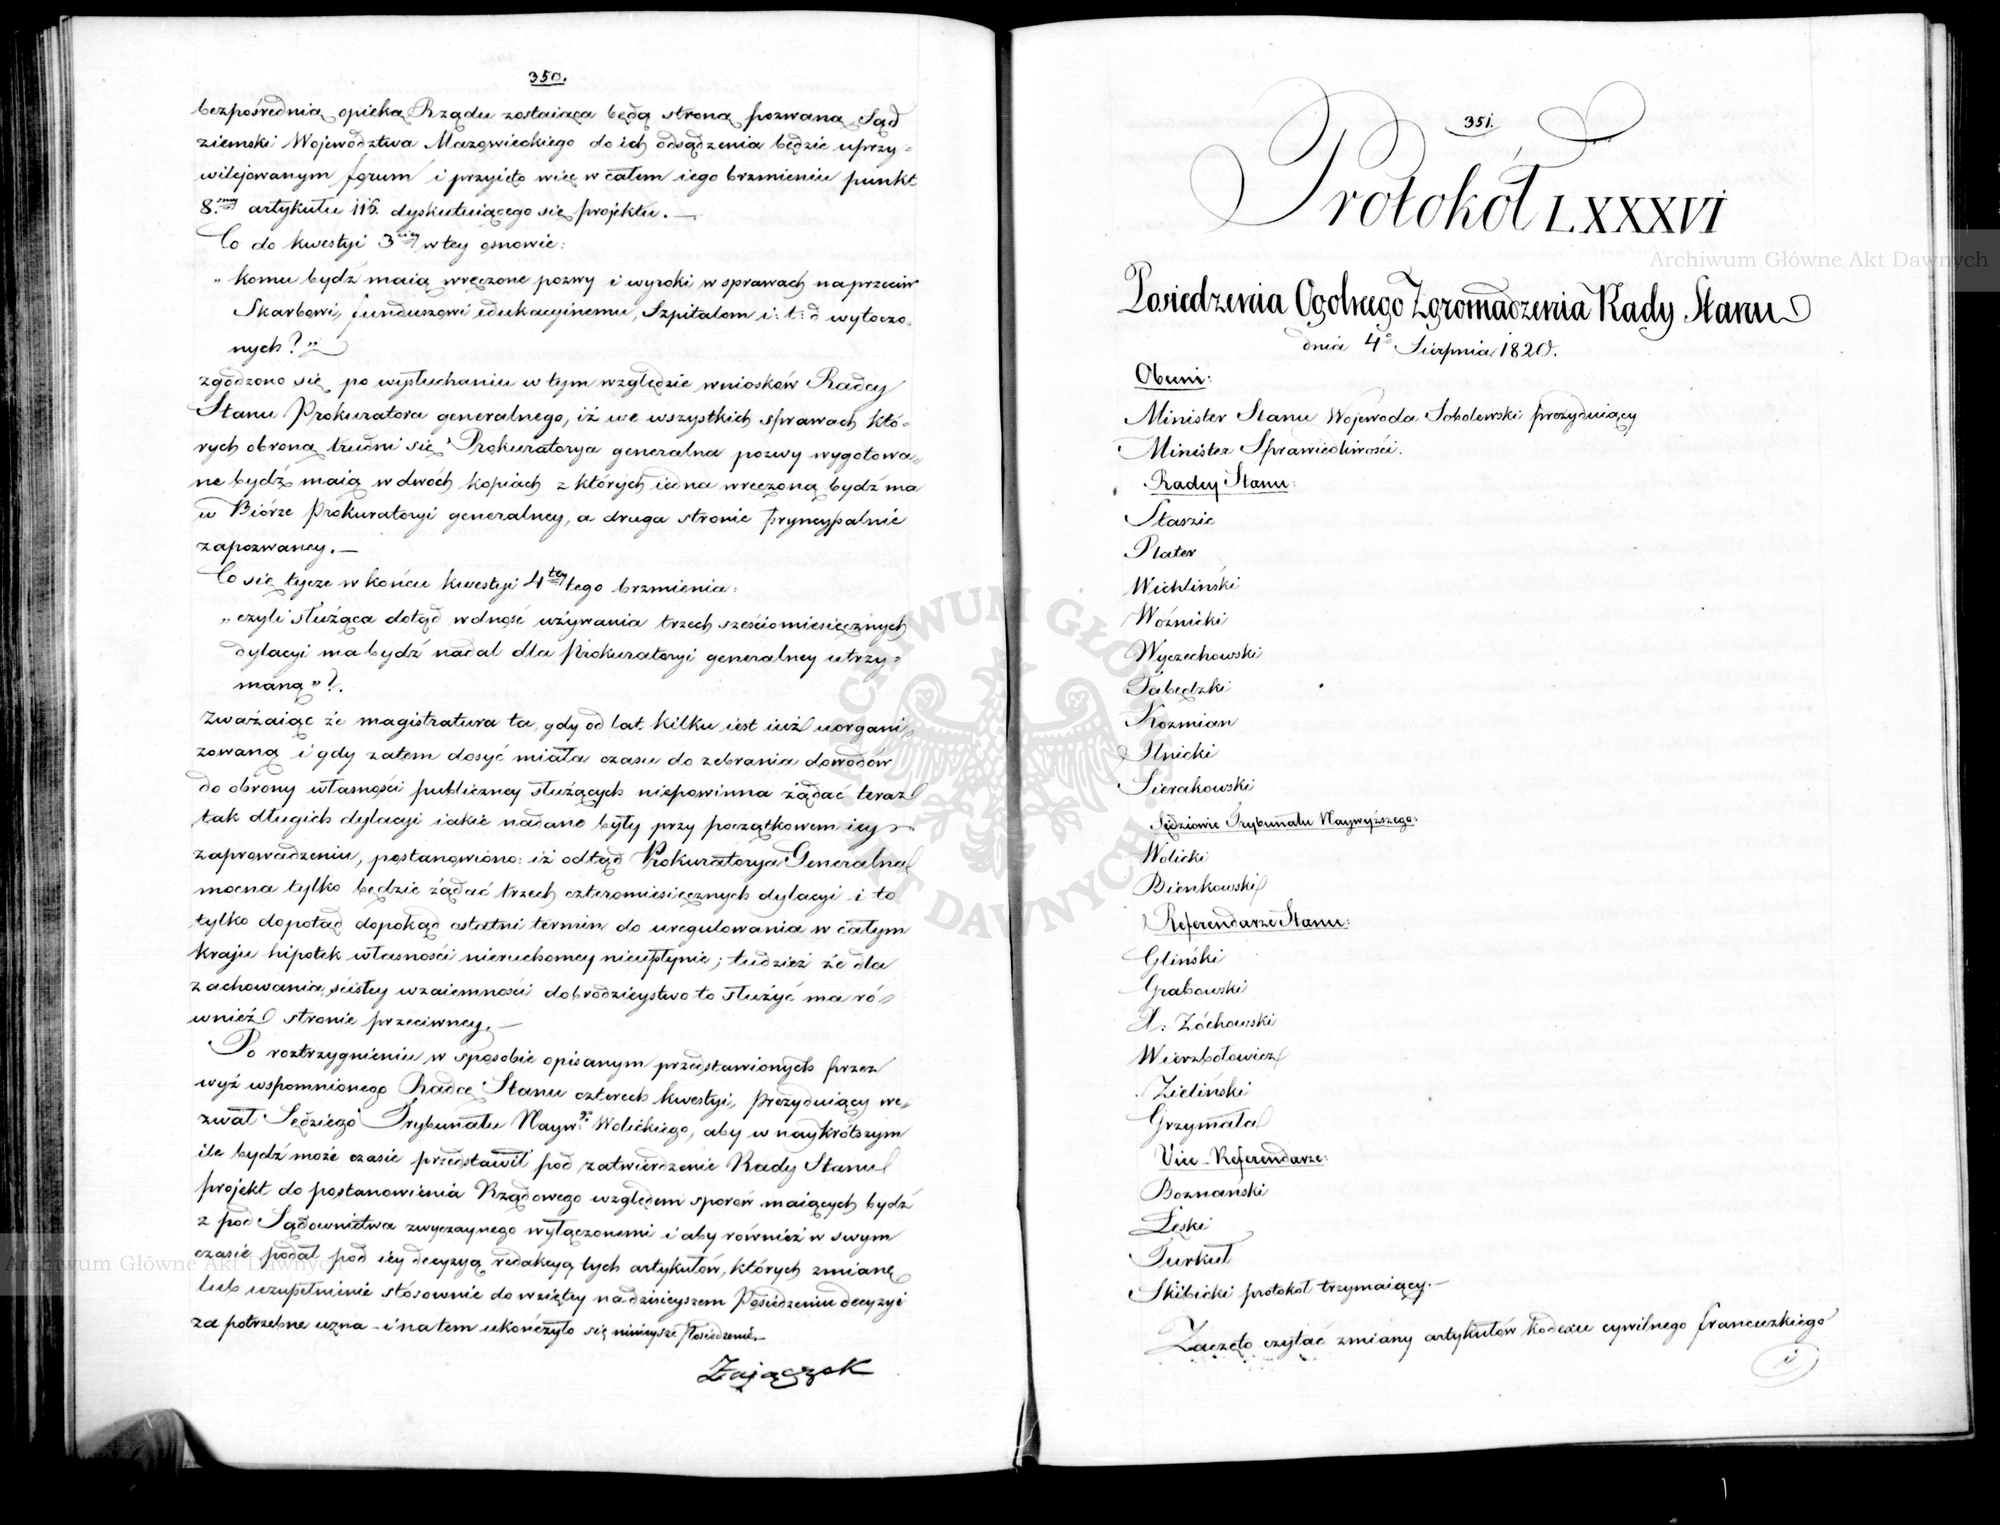 350.
bezpośrednią opieką Rządu zostaiącą będą stroną pozwaną. Sąd
ziemski Województwa Mazowieckiego do ich odsądzenia będzie uprzy-
wilejowanym forum i przyięto więc w całem iego brzmieniu punkt
8.my artykułu 116. dyskutuiącego się projektu. —
Co do kwestyi 3ciey w tey osnowie:
„komu bydź maią wręczone pozwy i wyroki w sprawach naprzeciw
Skarbowi, funduszowi edukacyinemu, Szpitalom i: t: d wytoczo-
nych?"
zgodzono się po wysłuchaniu w tym względzie wniosków Radcy
Stanu Prokuratora generalnego, iż we wszystkich sprawach któ-
rych obroną trudni się Prokuratorya generalna pozwy wygotowa-
ne bydź maią w dwóch kopiach z których iedna wręczoną bydź ma
w Biórze Prokuratoryi generalney, a druga stronie pryncypalnie
zapozwaney. —
Co się tycze w końcu kwestyi 4tey tego brzmienia:
„czyli służąca dotąd wolność używania trzech sześciomiesięcznych
dylacyi ma bydź nadal dla Prokuratoryi generalney utrzy-
maną"?.
Zważaiąc że magistratura ta, gdy od lat kilku iest iuż uorgani-
zowaną i gdy zatem dosyć miała czasu do zebrania dowodów
do obrony własności publiczney służących niepowinna żądać teraz
tak długich dylacyi iakie nadane były przy początkowem iey
zaprowadzeniu, postanowiono: iż odtąd Prokuratorya Generalna
mocna tylko będzie żądać trzech czteromiesięcznych dylacyi i to
tylko dopotąd dopokąd ostatni termin do uregulowania w całym
kraju hipotek własności nieruchomey nieupłynie; tudzież że dla
zachowania ścisłey wzaiemności dobrodzieystwo to służyć ma ró-
wnież stronie przeciwney. —
Po roztrzygnieniu w sposobie opisanym przedstawionych przez
wyż wspomnionego Radcę Stanu czterech kwestyi, Prezyduiący we-
zwał Sędziego Trybunału Nayw:go Wolickiego, aby w naykrótszym
ile bydź może czasie przedstawił pod zatwierdzenie Rady Stanu
projekt do postanowienia Rządowego względem sporów maiących bydź
z pod Sądownictwa zwyczaynego wyłączonemi i aby również w swym
czasie podał pod iey decyzyą redakcyą tych artykułów, których zmianę
lub uzupełnienie stósownie do wziętey na dzisieyszem Posiedzeniu decyzyi
za potrzebne uzna – i na tem ukończyło się ninieysze Posiedzenie. —
Zajączek
351.
Protokół LXXXVI
Posiedzenia Ogolnego Zgromadzenia Rady Stanu
dnia 4o Sierpnia 1820.
Obecni:
Minister Stanu Wojewoda Sobolewski prezyduiący
Minister Sprawiedliwości.
Radcy Stanu:
Staszic
Plater
Wichliński
Woźnicki
Wyczechowski
Łabędzki
Kozmian
Ilnicki
Sierakowski
Sędziowie Trybunału Naywyższego:
Wolicki
Bieńkowski
Referendarze Stanu:
Gliński
Grabowski
X: Żóchowski
Wierzbołowicz
Zieliński
Grzymała
Vice-Referendarze:
Boznański
Łęski
Turkuł
Skibicki protokół trzymaiący. —
Zaczęto czytać zmiany artykułów kodexu cywilnego francuzkiego
i
Archiwum Główne Akt Dawnych
Archiwum Główne Akt Dawnych
ARCHIWUM GŁÓWNE AKT DAWNYCH